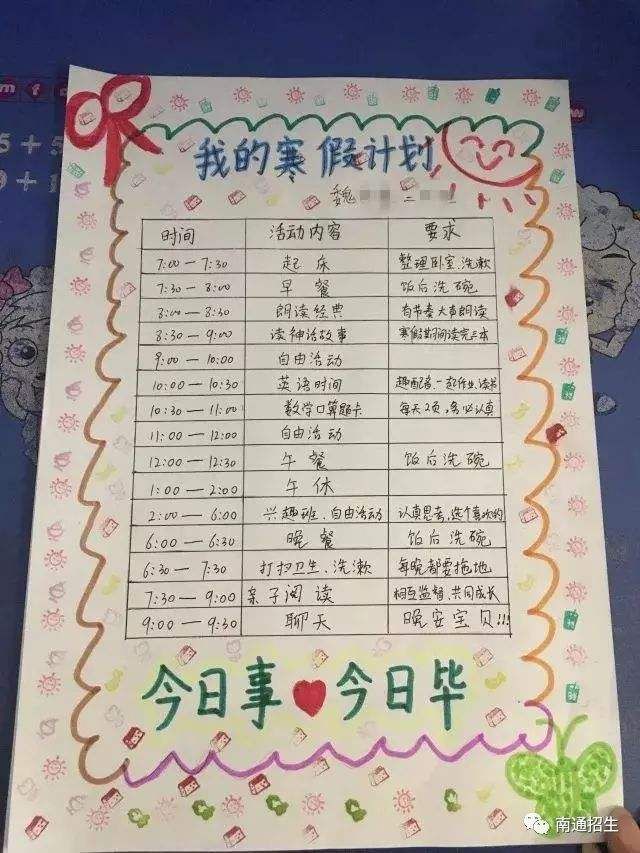 我的寒假计划
魏 二
时间 活动内容 要求
7:00—7:30 起床 整理卧室、洗漱
7:30—8:00 早餐 饭后洗碗
8:00—8:30 朗读经典 有节奏大声朗读
8:30—9:00 读神话故事 寒假期间读完三本
9:00—10:00 自由活动
10:00—10:30 英语时间 趣配音、一起作业、读书
10:30—11:00 数学口算题卡 每天2页,务必认真
11:00—12:00 自由活动
12:00—12:30 午餐 饭后洗碗
1:00—2:00 午休
2:00—6:00 兴趣班、自由活动 认真思考,选个喜欢的
6:00—6:30 晚餐 饭后洗碗
6:30—7:30 打扫卫生、洗漱 每晚都要拖地
7:30—9:00 亲子阅读 相互监督、共同成长
9:00—9:30 聊天 晚安宝贝!!!
今日事 今日毕
南通招生